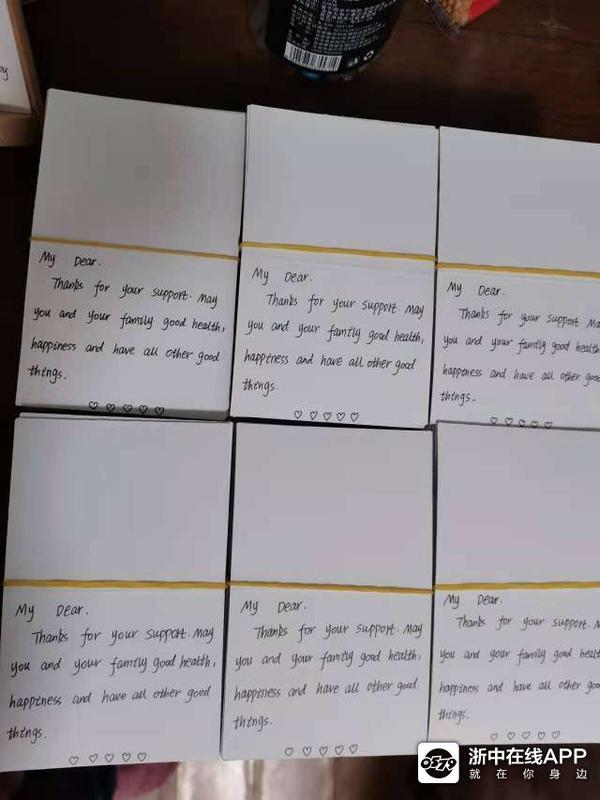 My Dear.
Thanks for your support. May
you and your family good health,
happiness and have all other good
things.
My Dear.
Thanks for your support. May
you and your family good health,
happiness and have all other good
things.
My Dear.
Thanks for your support. Ma
you and your family good health
happiness and have all other good
things.
My Dear.
Thanks for your support. May
you and your family good health,
happiness and have all other good
things.
My Dear.
Thanks for your support. May
you and your family good health,
happiness and have all other good
things.
My Dear.
Thanks for your support. M
you and your family good healt
happiness and have all other goo
things.
0579 浙中在线APP
就在你身边